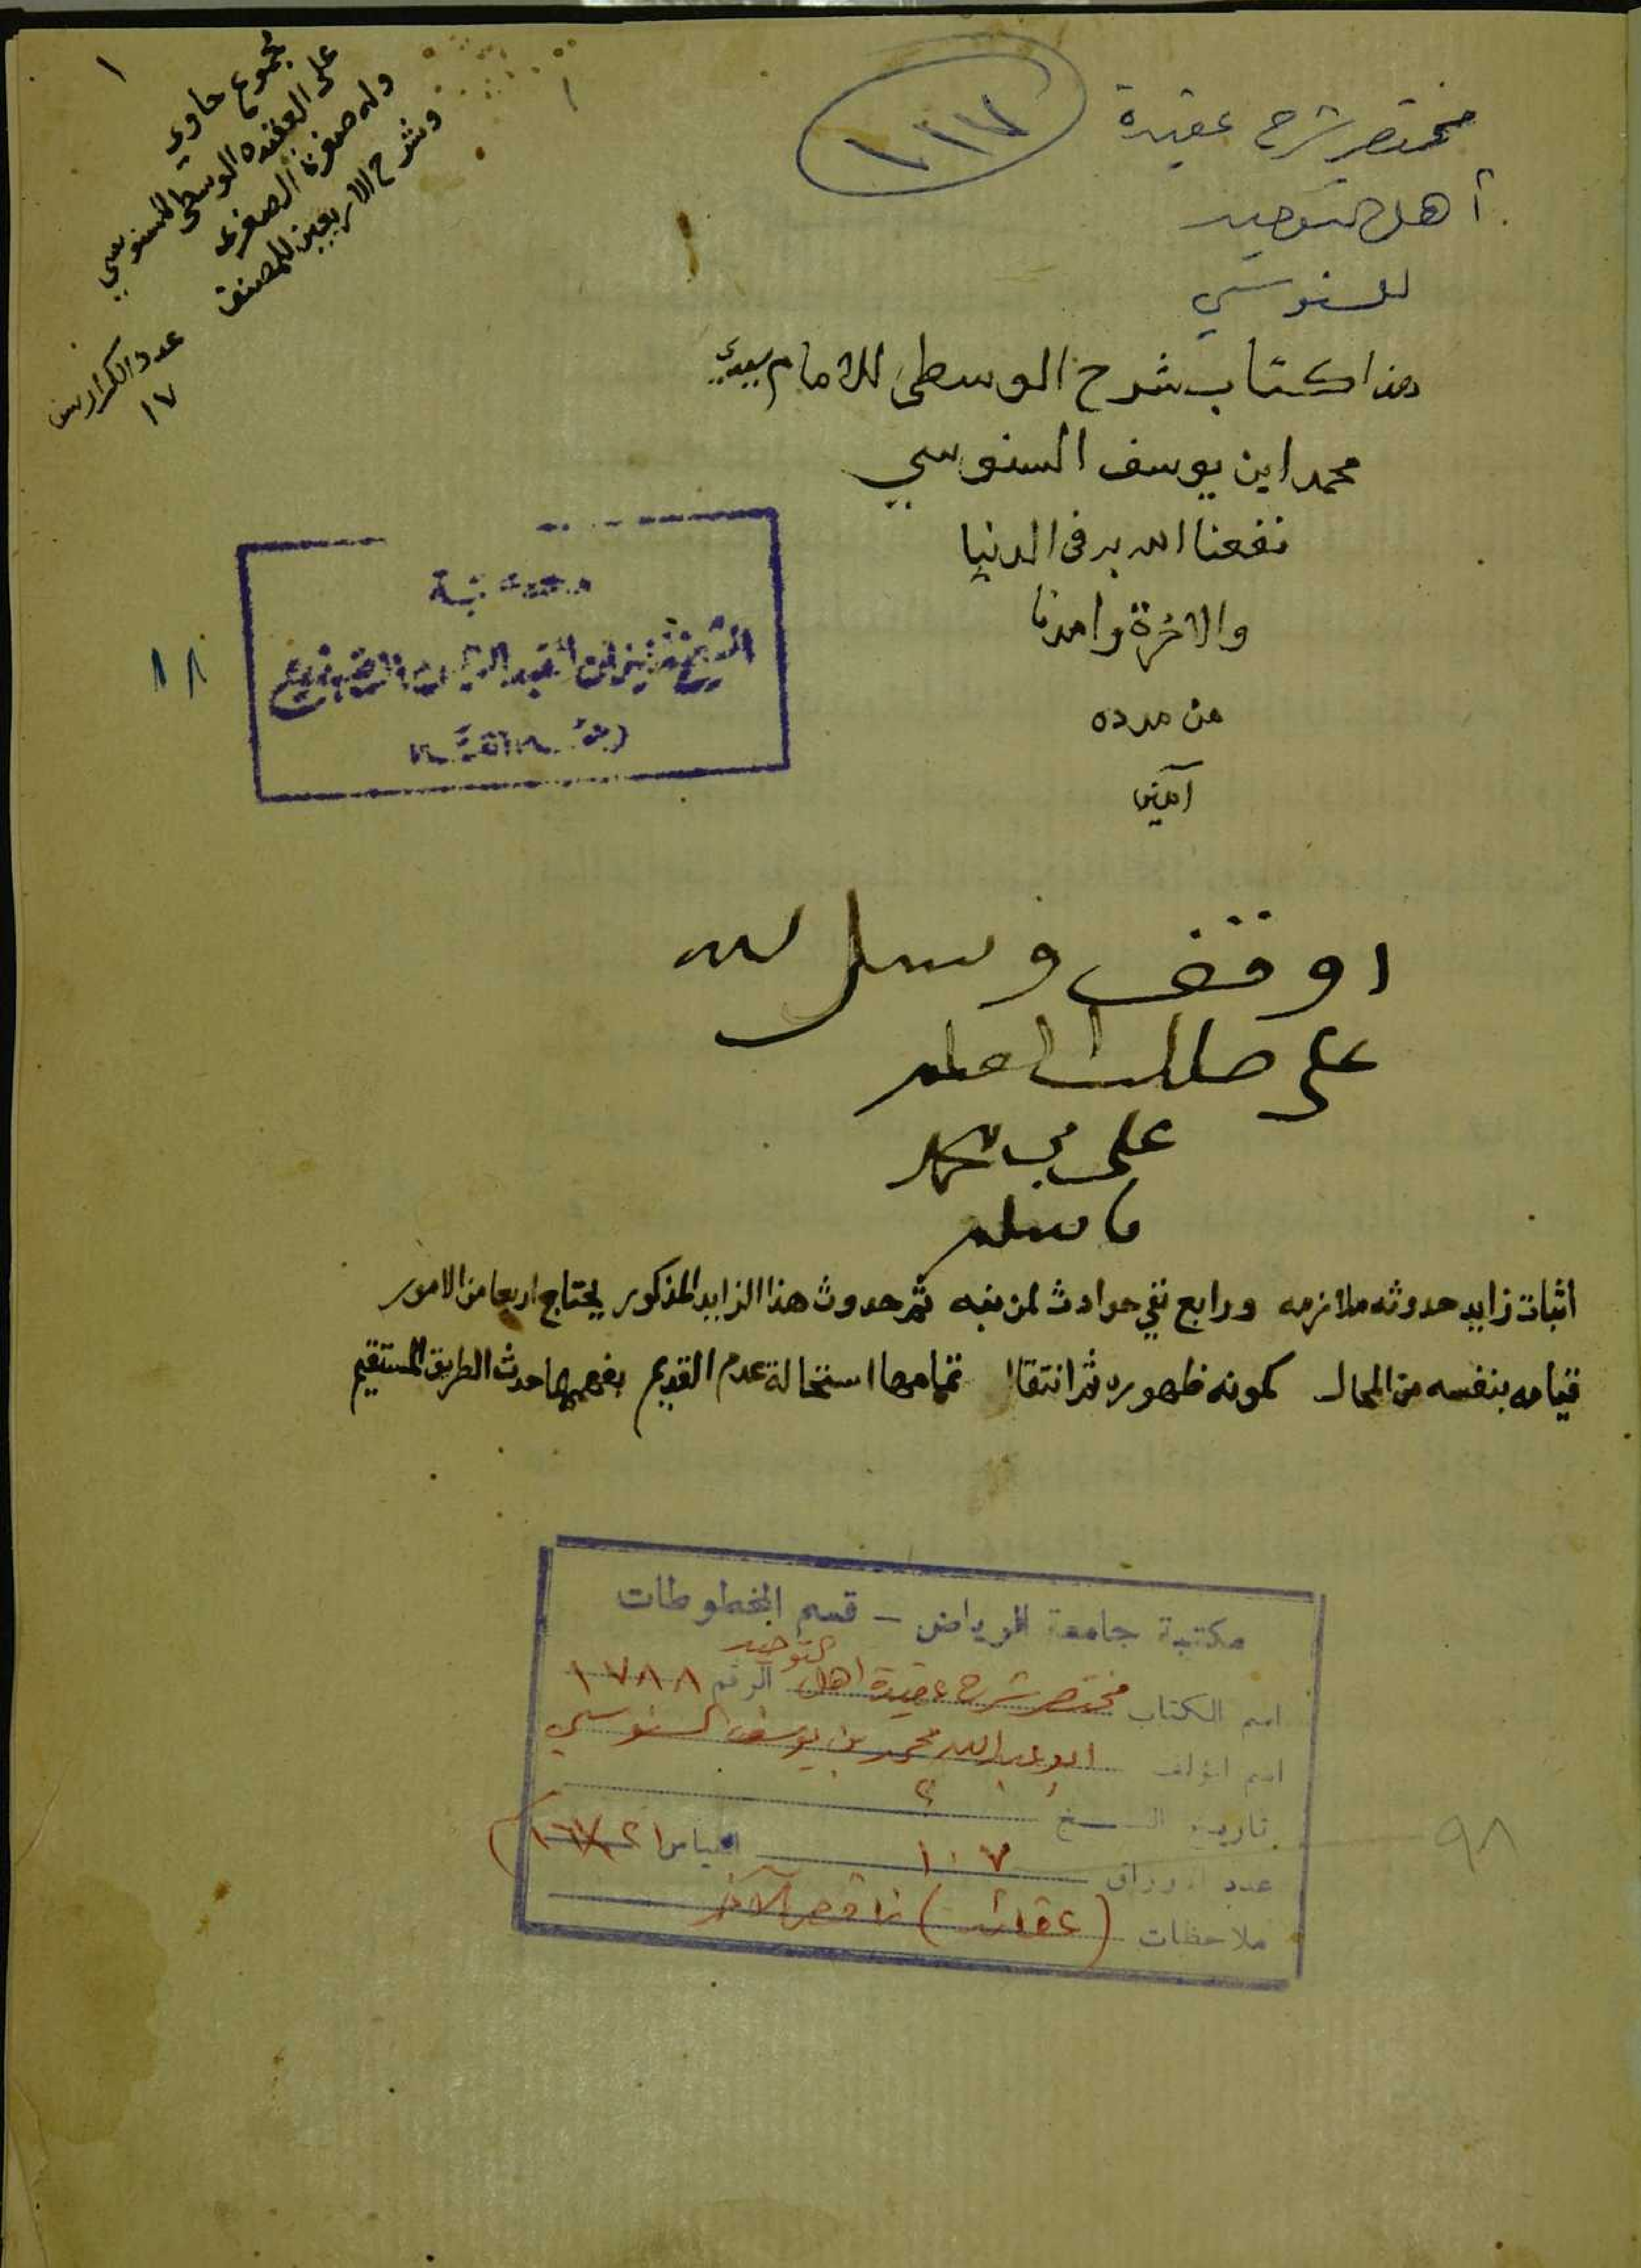 ١
مجموع حاوي
على العقيده الوسطى للسنوسي
وله صغرة الصغرى
وشرح الاربعين للمصنف
عدد الكراريس
١٧
مختصر شرح عقيدة
أهل التوحيد
للسنوسي
هذا كتاب شرح الوسطى للامام سيدي
محمد ابن يوسف السنوسي
نفعنا الله به في الدنيا
والاخرة وامدنا
من مدده
آمين
١٨
اوقف وسبل لله
على طالب العلم
على
اثبات زايد حدوثه ملازمه ورابع نفي حوادث لمن نبه ثم حدوث هذا الزايد المذكور يحتاج اربعا من الامور
قيامه بنفسه من المحال كمونه ظهوره ثم انتقال تمامها استحالة عدم القديم بفهمها حدث الطريق المستقيم
مكتبة جامعة الرياض - قسم المخطوطات
اسم الكتاب مختصر شرح عقيدة اهل التوحيد الرقم ١٧٨٨
اسم المؤلف ابو عبد الله محمد بن يوسف السنوسي
تاريخ النسخ ؟
عدد الاوراق ١٠٧ القياس
ملاحظات (عقائد) ناقص الآخر
٩٨